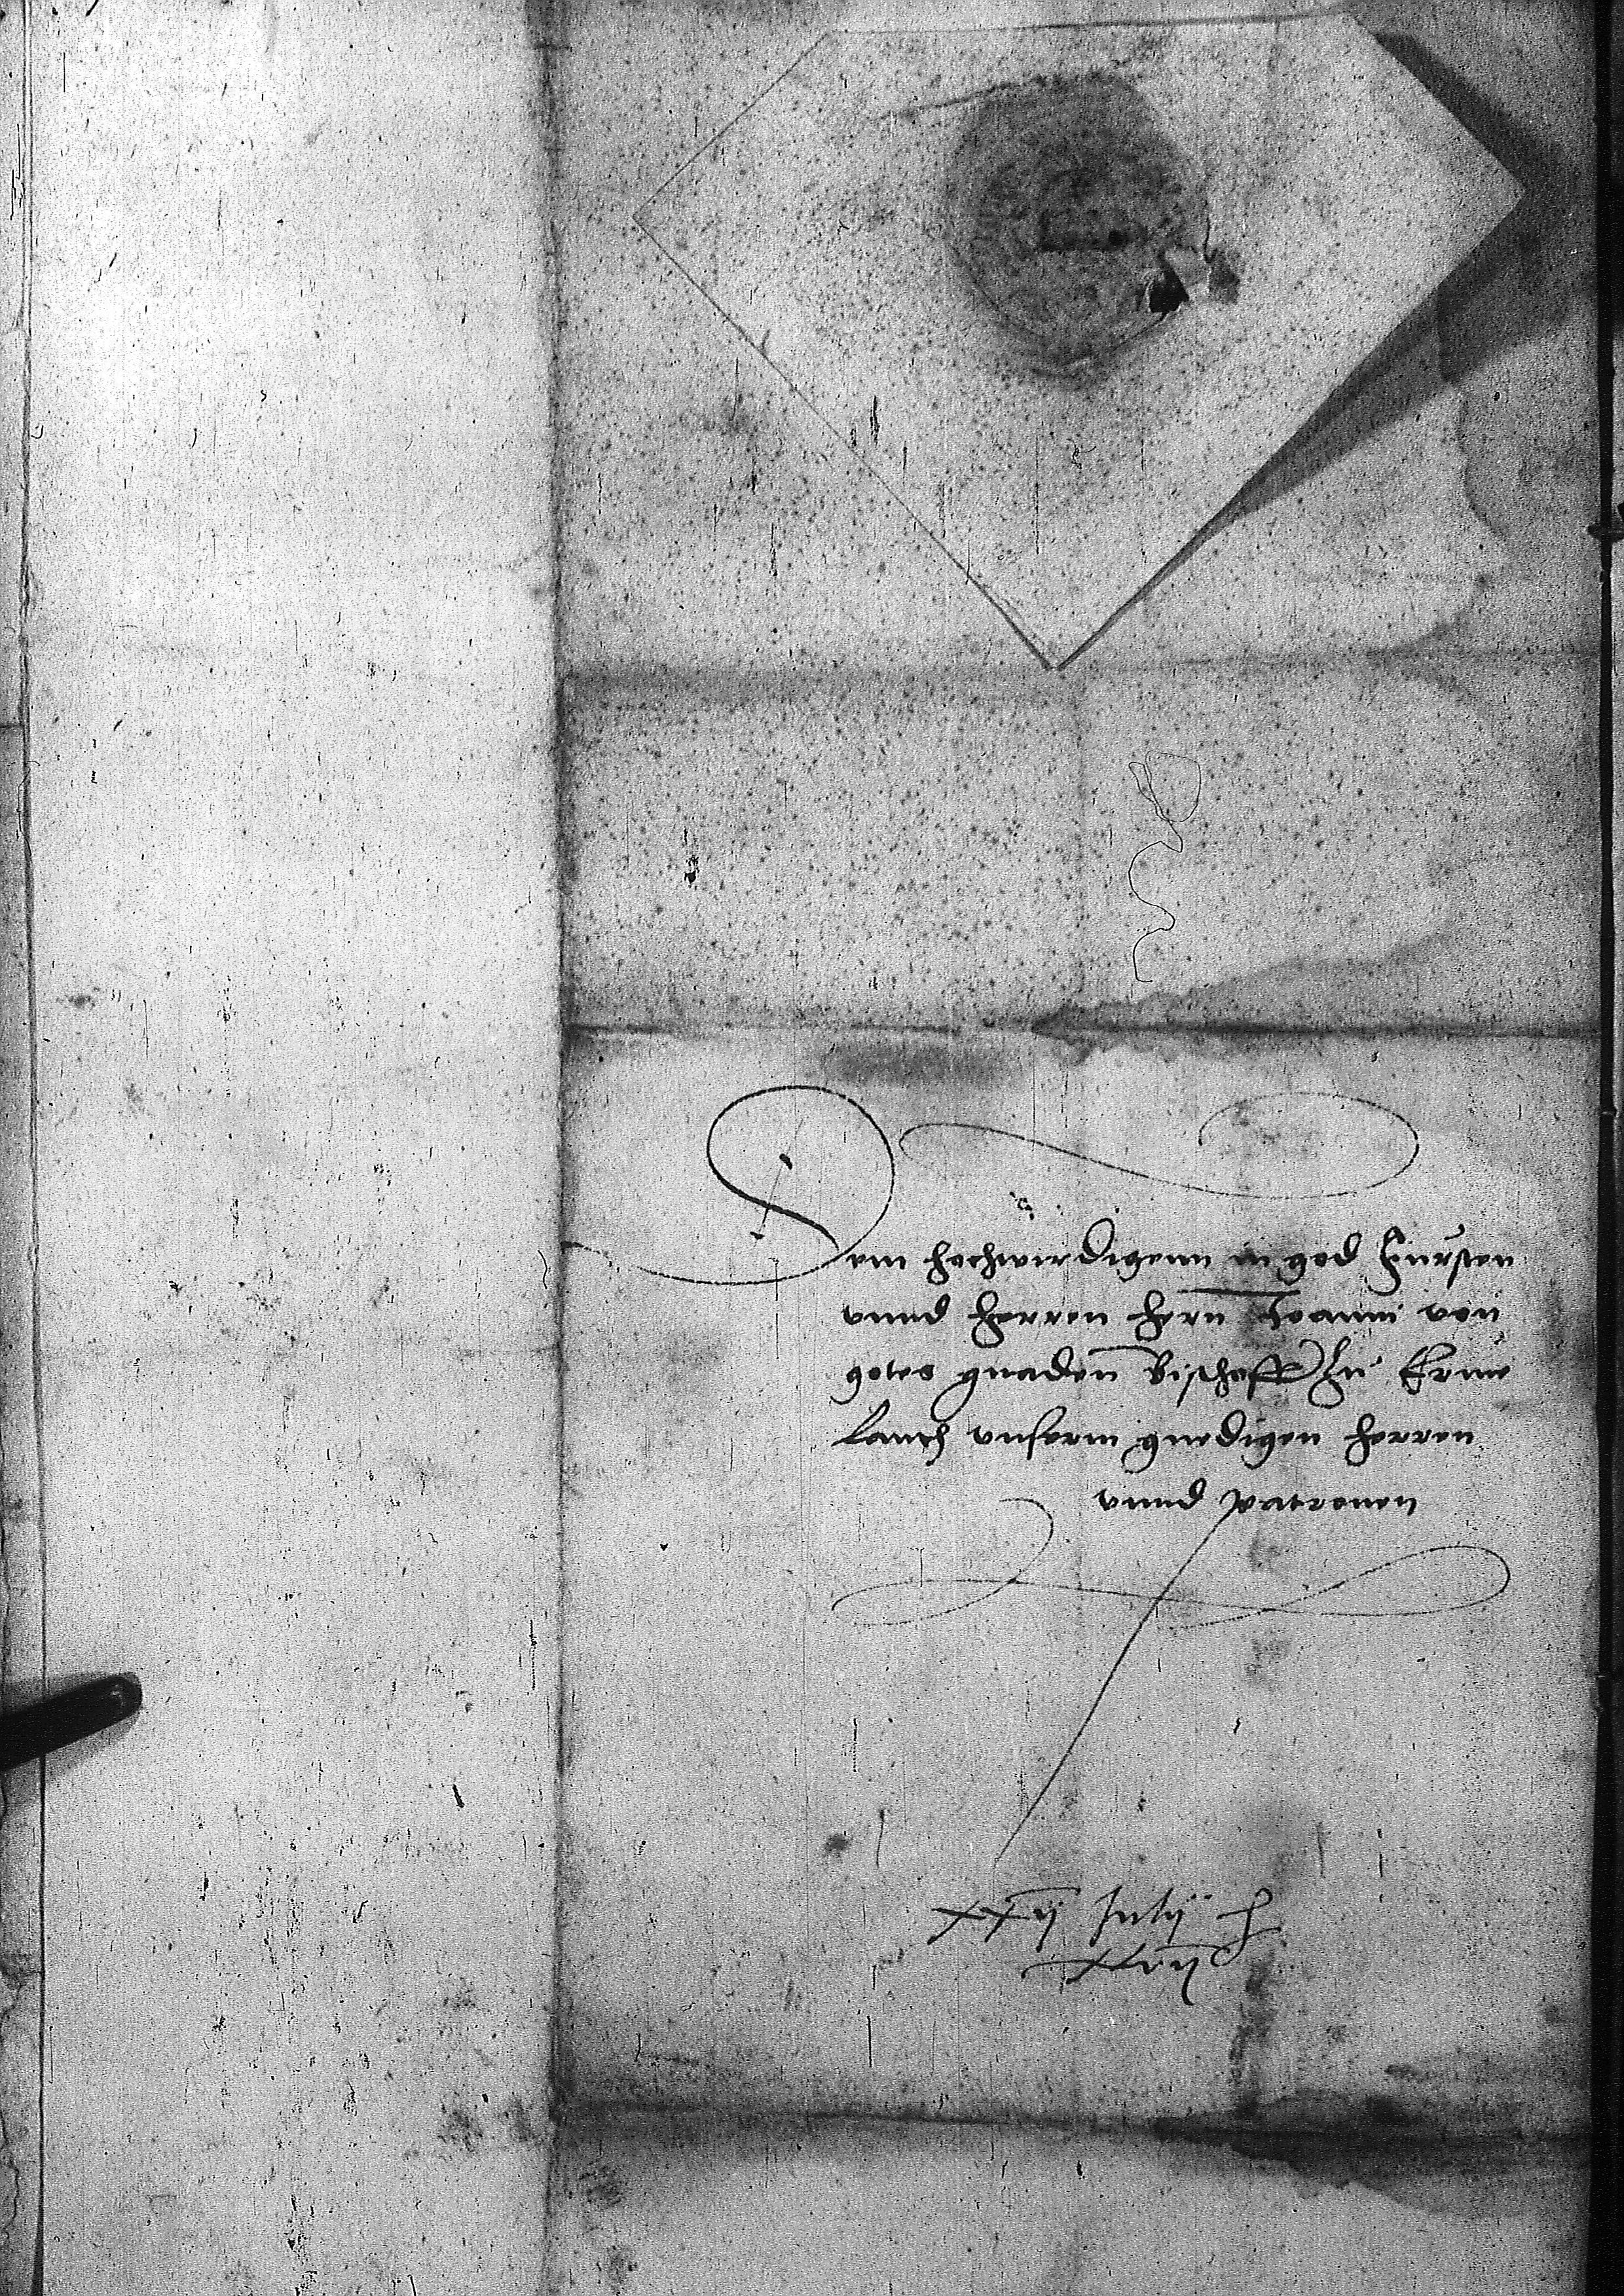 Dem hochwirdigenn in god Fursten
vnnd herren hern Joanni von
gotes gnaden Bischoff zu Erme
landh vnserm gnedigen herren
vnnd patronen
xxij Julij
xxvij